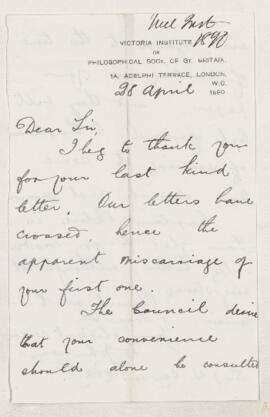 Vict Inst
1890
VICTORIA INSTITUTE
OR
PHILOSOPHICAL SOCY. OF GT. BRITAIN.
7A, ADELPHI TERRACE, LONDON,
W.C.
28 April 1890
Dear Sir,
I beg to thank you
for your last kind
letter. Our letters have
crossed, hence the
apparent miscarriage of
your first one.
The Council desire
that your convenience
should alone be consulted